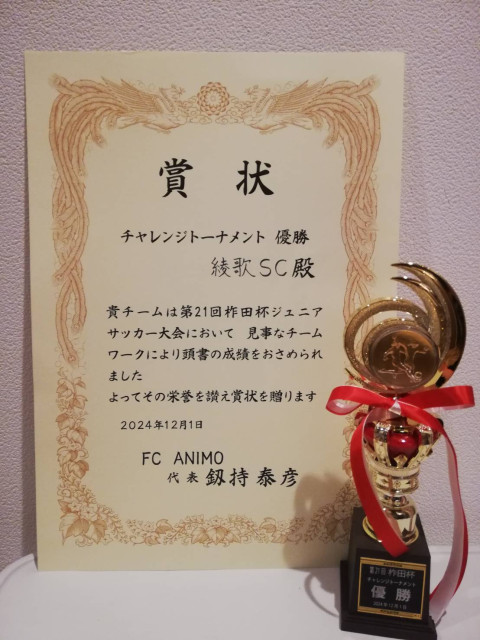 賞状
チャレンジトーナメント 優勝
綾歌SC殿
貴チームは第21回柞田杯ジュニア
サッカー大会において 見事なチーム
ワークにより頭書の成績をおさめられ
ました
よってその栄誉を讃え賞状を贈ります
2024年12月1日
FC ANIMO
代表 釼持泰彦
第21回 柞田杯
チャレンジトーナメント
優勝
2024年12月1日